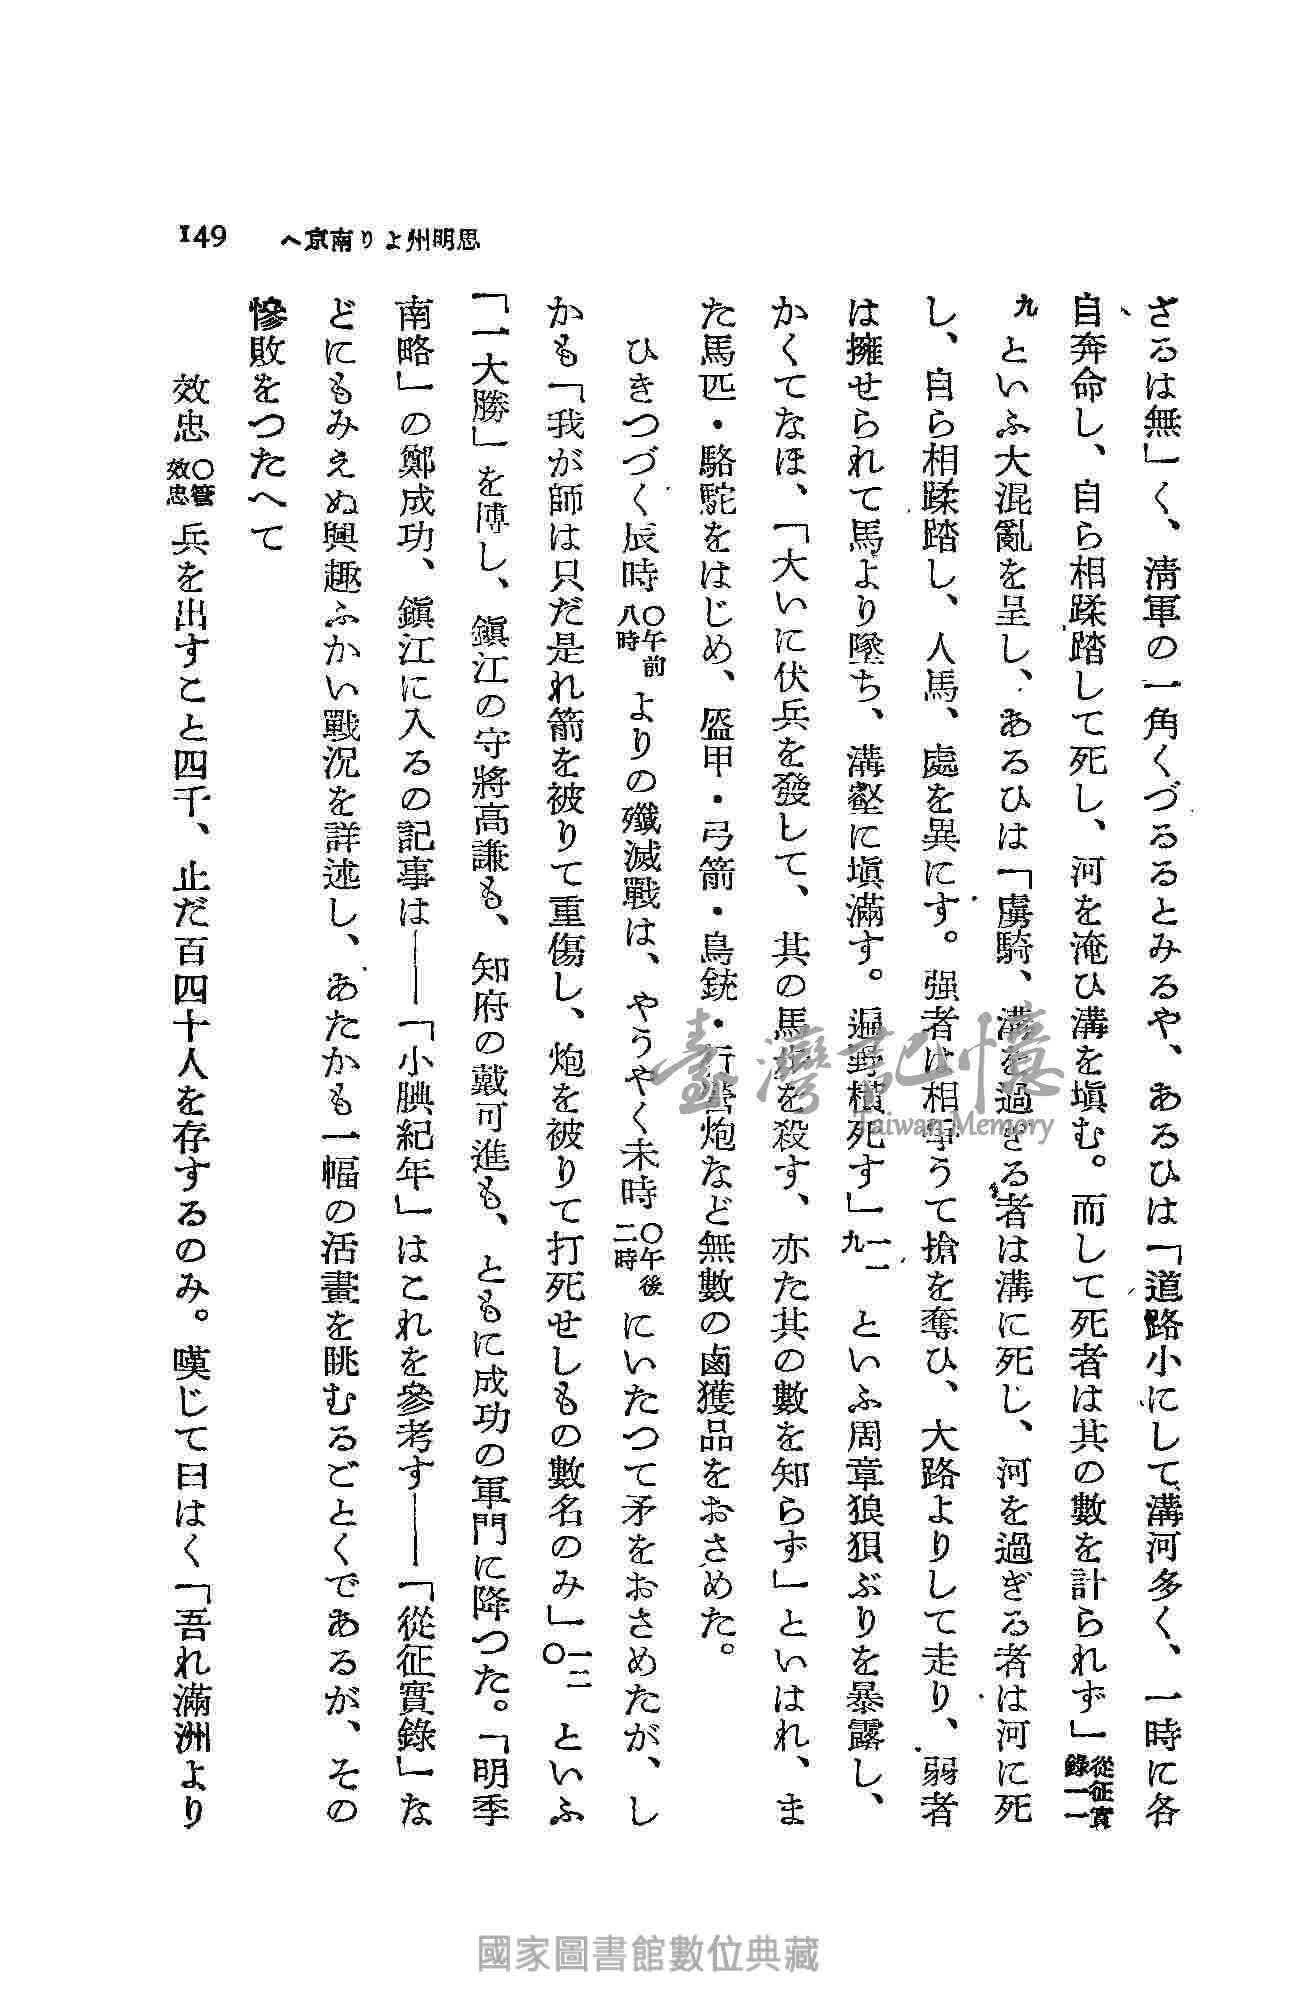 149
思明州より南京へ
ざるは無」く、淸軍の一角くづるるとみるや、あるひは「道路小にして溝河多く、一時に各
自奔命し、自ら相蹂踏して死し、河を淹ひ溝を塡む。而して死者は其の數を計られず」從征實錄一一
九 といふ大混亂を呈し、あるひは「虜騎、溝を過ぎる者は溝に死し、河を過ぎる者は河に死
し、自ら相蹂踏し、人馬、處を異にす。强者は相爭うて搶を奪ひ、大路よりして走り、弱者
は擁せられて馬より墜ち、溝壑に塡滿す。遍野積死す」一一九 といふ周章狼狽ぶりを暴露し、
かくてなほ、「大いに伏兵を發して、其の馬步を殺す、亦た其の數を知らず」といはれ、ま
た馬匹・駱駝をはじめ、盔甲・弓箭・鳥銃・行營炮など無數の鹵獲品をおさめた。
ひきつづく辰時〇午前八時よりの殲滅戰は、やうやく未時〇午後二時にいたつて矛をおさめたが、し
かも「我が師は只だ是れ箭を被りて重傷し、炮を被りて打死せしもの數名のみ」一二〇 といふ
「一大勝」を博し、鎭江の守將高謙も、知府の戴可進も、ともに成功の軍門に降つた。「明季
南略」の鄭成功、鎭江に入るの記事は――「小腆紀年」はこれを參考す――「從征實錄」な
どにもみえぬ興趣ふかい戰況を詳述し、あたかも一幅の活畫を眺むるごとくであるが、その
慘敗をつたへて
效忠〇管效忠兵を出すこと四千、止だ百四十人を存するのみ。嘆じて曰はく「吾れ滿洲より
臺灣記憶
Taiwan Memory
國家圖書館數位典藏